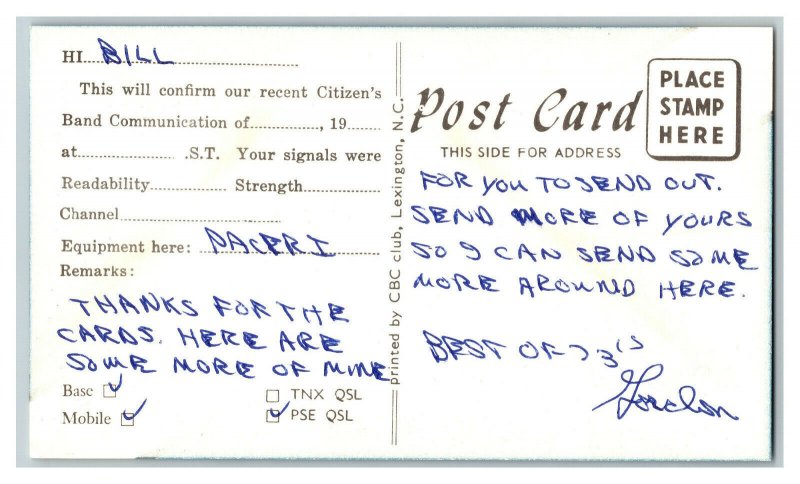 HI BILL
This will confirm our recent Citizen's
Band Communication of............, 19......
at........................ .S.T. Your signals were
Readability................ Strength................
Channel................................
Equipment here: PACERI
Remarks:
THANKS FOR THE
CARDS. HERE ARE
SOME MORE OF MINE
Base ☑ ☐ TNX QSL
Mobile ☑ ☑ PSE QSL
printed by CBC club, Lexington, N.C.
Post Card
THIS SIDE FOR ADDRESS
PLACE
STAMP
HERE
FOR YOU TO SEND OUT.
SEND MORE OF YOURS
SO I CAN SEND SOME
MORE AROUND HERE.
BEST OF 73'S
Gordon